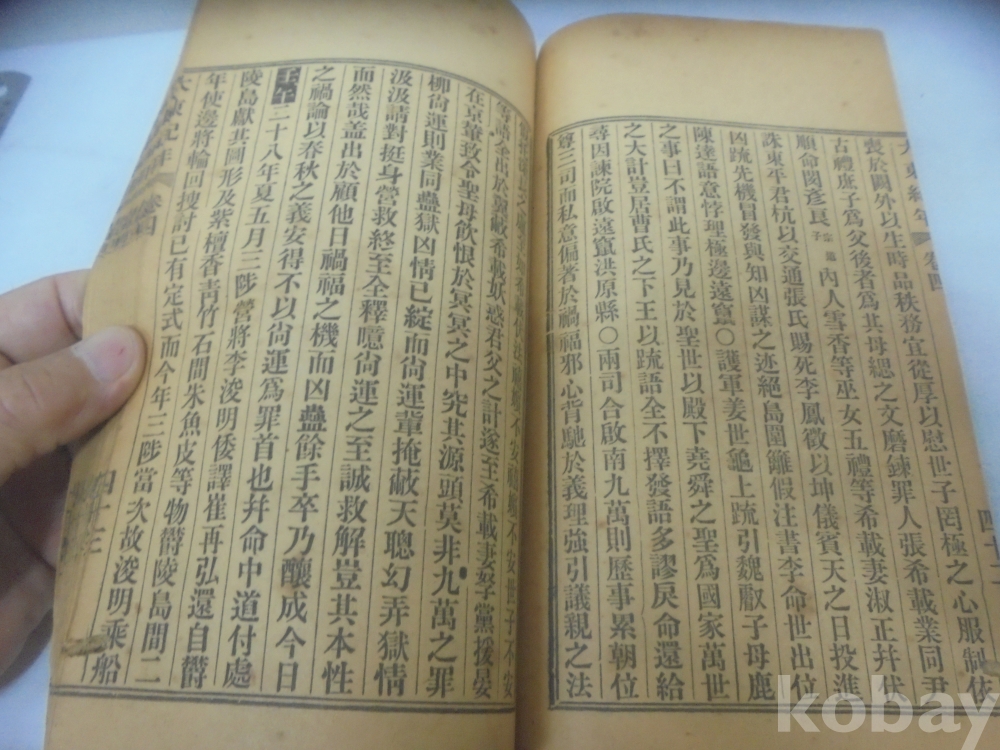 大東紀年 卷四 四十二
喪於闕外以生時品秩務宜從厚以慰世子罔極之心服制依
古禮庶子爲父後者爲其母緦之文磨鍊罪人張希載業同尹
順命閔彦良 宗子 內人雪香等巫女五禮等希載妻淑正幷伏
誅東平君杭以交通張氏賜死李鳳徵以坤儀賓天之日投進
凶䟽先機冒發與知凶謀之迹絕島圍籬假注書李命世出位
陳達語意悖理極邊遠竄○護軍姜世龜上䟽引魏叡子母鹿
之事曰不謂此事乃見於聖世以殿下堯舜之聖爲國家萬世
之大計豈居曹氏之下王以䟽語全不擇發語多謬戾命還給
尋因諫院啟遠竄洪原縣○兩司合啟南九萬則歷事累朝位
尊三司而私意偏著於禍福邪心背馳於義理強引議親之法
等語全出於 希載妖惑君父之計遂至希載妻孥子黨援晏
在京輦致令聖母飮恨於冥冥之中究其源頭莫非九萬之罪
柳尙運則業同蠱獄凶情已綻而尙運輩掩蔽天聰幻弄獄情
汲汲請對挺身營救終至全釋噫尙運之至誠救解豈其本性
而然哉盖出於顧他日禍福之機而凶蠱餘手卒乃釀成今日
之禍論以春秋之義安得不以尙運爲罪首也幷命中道付處
壬午二十八年夏五月三陟營將李浚明倭譯崔再弘還自欝
陵島獻其圖形及紫檀香靑竹石間朱魚皮等物欝陵島間二
年使邊將輪回搜討已有定式而今年三陟當次故浚明乘船
大東紀年 卷四 四十三
kobay